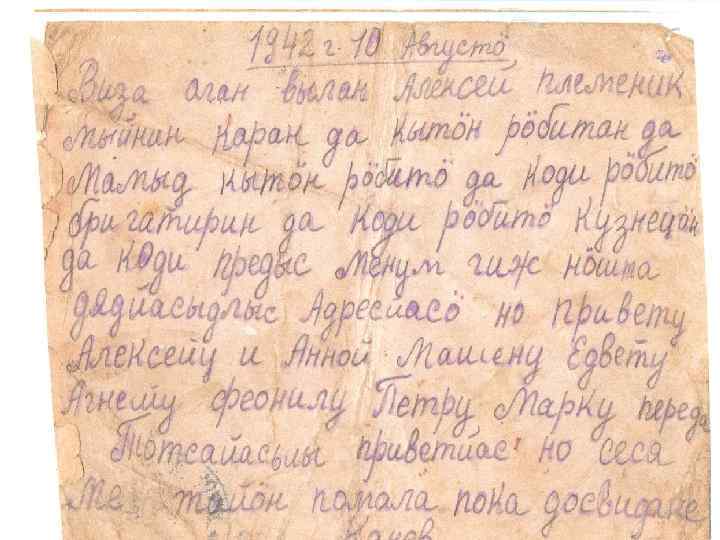 1942 г. 10 Августӧ
Виза аган вылан Алексей племеник
мыйнин каран да кытӧн рӧбитан да
Мамыд кытӧн рӧбитӧ да коди рӧбитӧ
бригатирин да коди рӧбитӧ кузнецӧн
да коди предыс менум гиж нӧшта
дядйасыдлыс Адресйасӧ но привету
Алексейу и Анной Машену Едвету
Агнейу феонилу Петру Марку переда
Тотсайасьлы приветйас но сеся
ме тайӧн помала пока досвидане
Канев